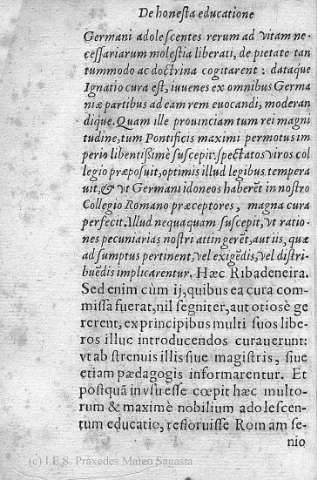 De honesta educatione
Germani adolescentes rerum ad vitam ne-
ceſſariarum moleſtia liberati, de pietate tan
tummodo ac doctrina cogitarent : dataque
Ignatio cura eſt, iuuenes ex omnibus Germa
niæ partibus ad eam rem euocandi, moderan
dique. Quam ille prouinciam tum rei magni
tudine, tum Pontificis maximi permotus im
perio libentiſsimè ſuſcepit, ſpectatos viros col
legio præpoſuit, optimis illud legibus tempera
uit, & vt Germani idoneos haberẽt in noſtro
Collegio Romano præceptores, magna cura
perfecit. Illud nequaquam ſuſcepit, vt ratio-
nes pecuniarias noſtri attingerẽt, aut iis, quæ
ad ſumptus pertinent, vel exigẽdis, vel diſtri-
buẽdis implicarentur. Hæc Ribadeneira.
Sed enim cùm ij, quibus ea cura com-
miſſa fuerat, nil ſegniter, aut otiosè ge
rerent, ex principibus multi ſuos libe-
ros illuc introducendos curauerunt:
vt ab ſtrenuis illis ſiue magiſtris, ſiue
etiam pædagogis informarentur. Et
poſtquã in vſu eſſe cœpit hæc multo-
rum & maximè nobilium adoleſcen-
tum educatio, refloruiſſe Romam ſe-
nio
(c) I.E.S. Práxedes Mateo Sagasta